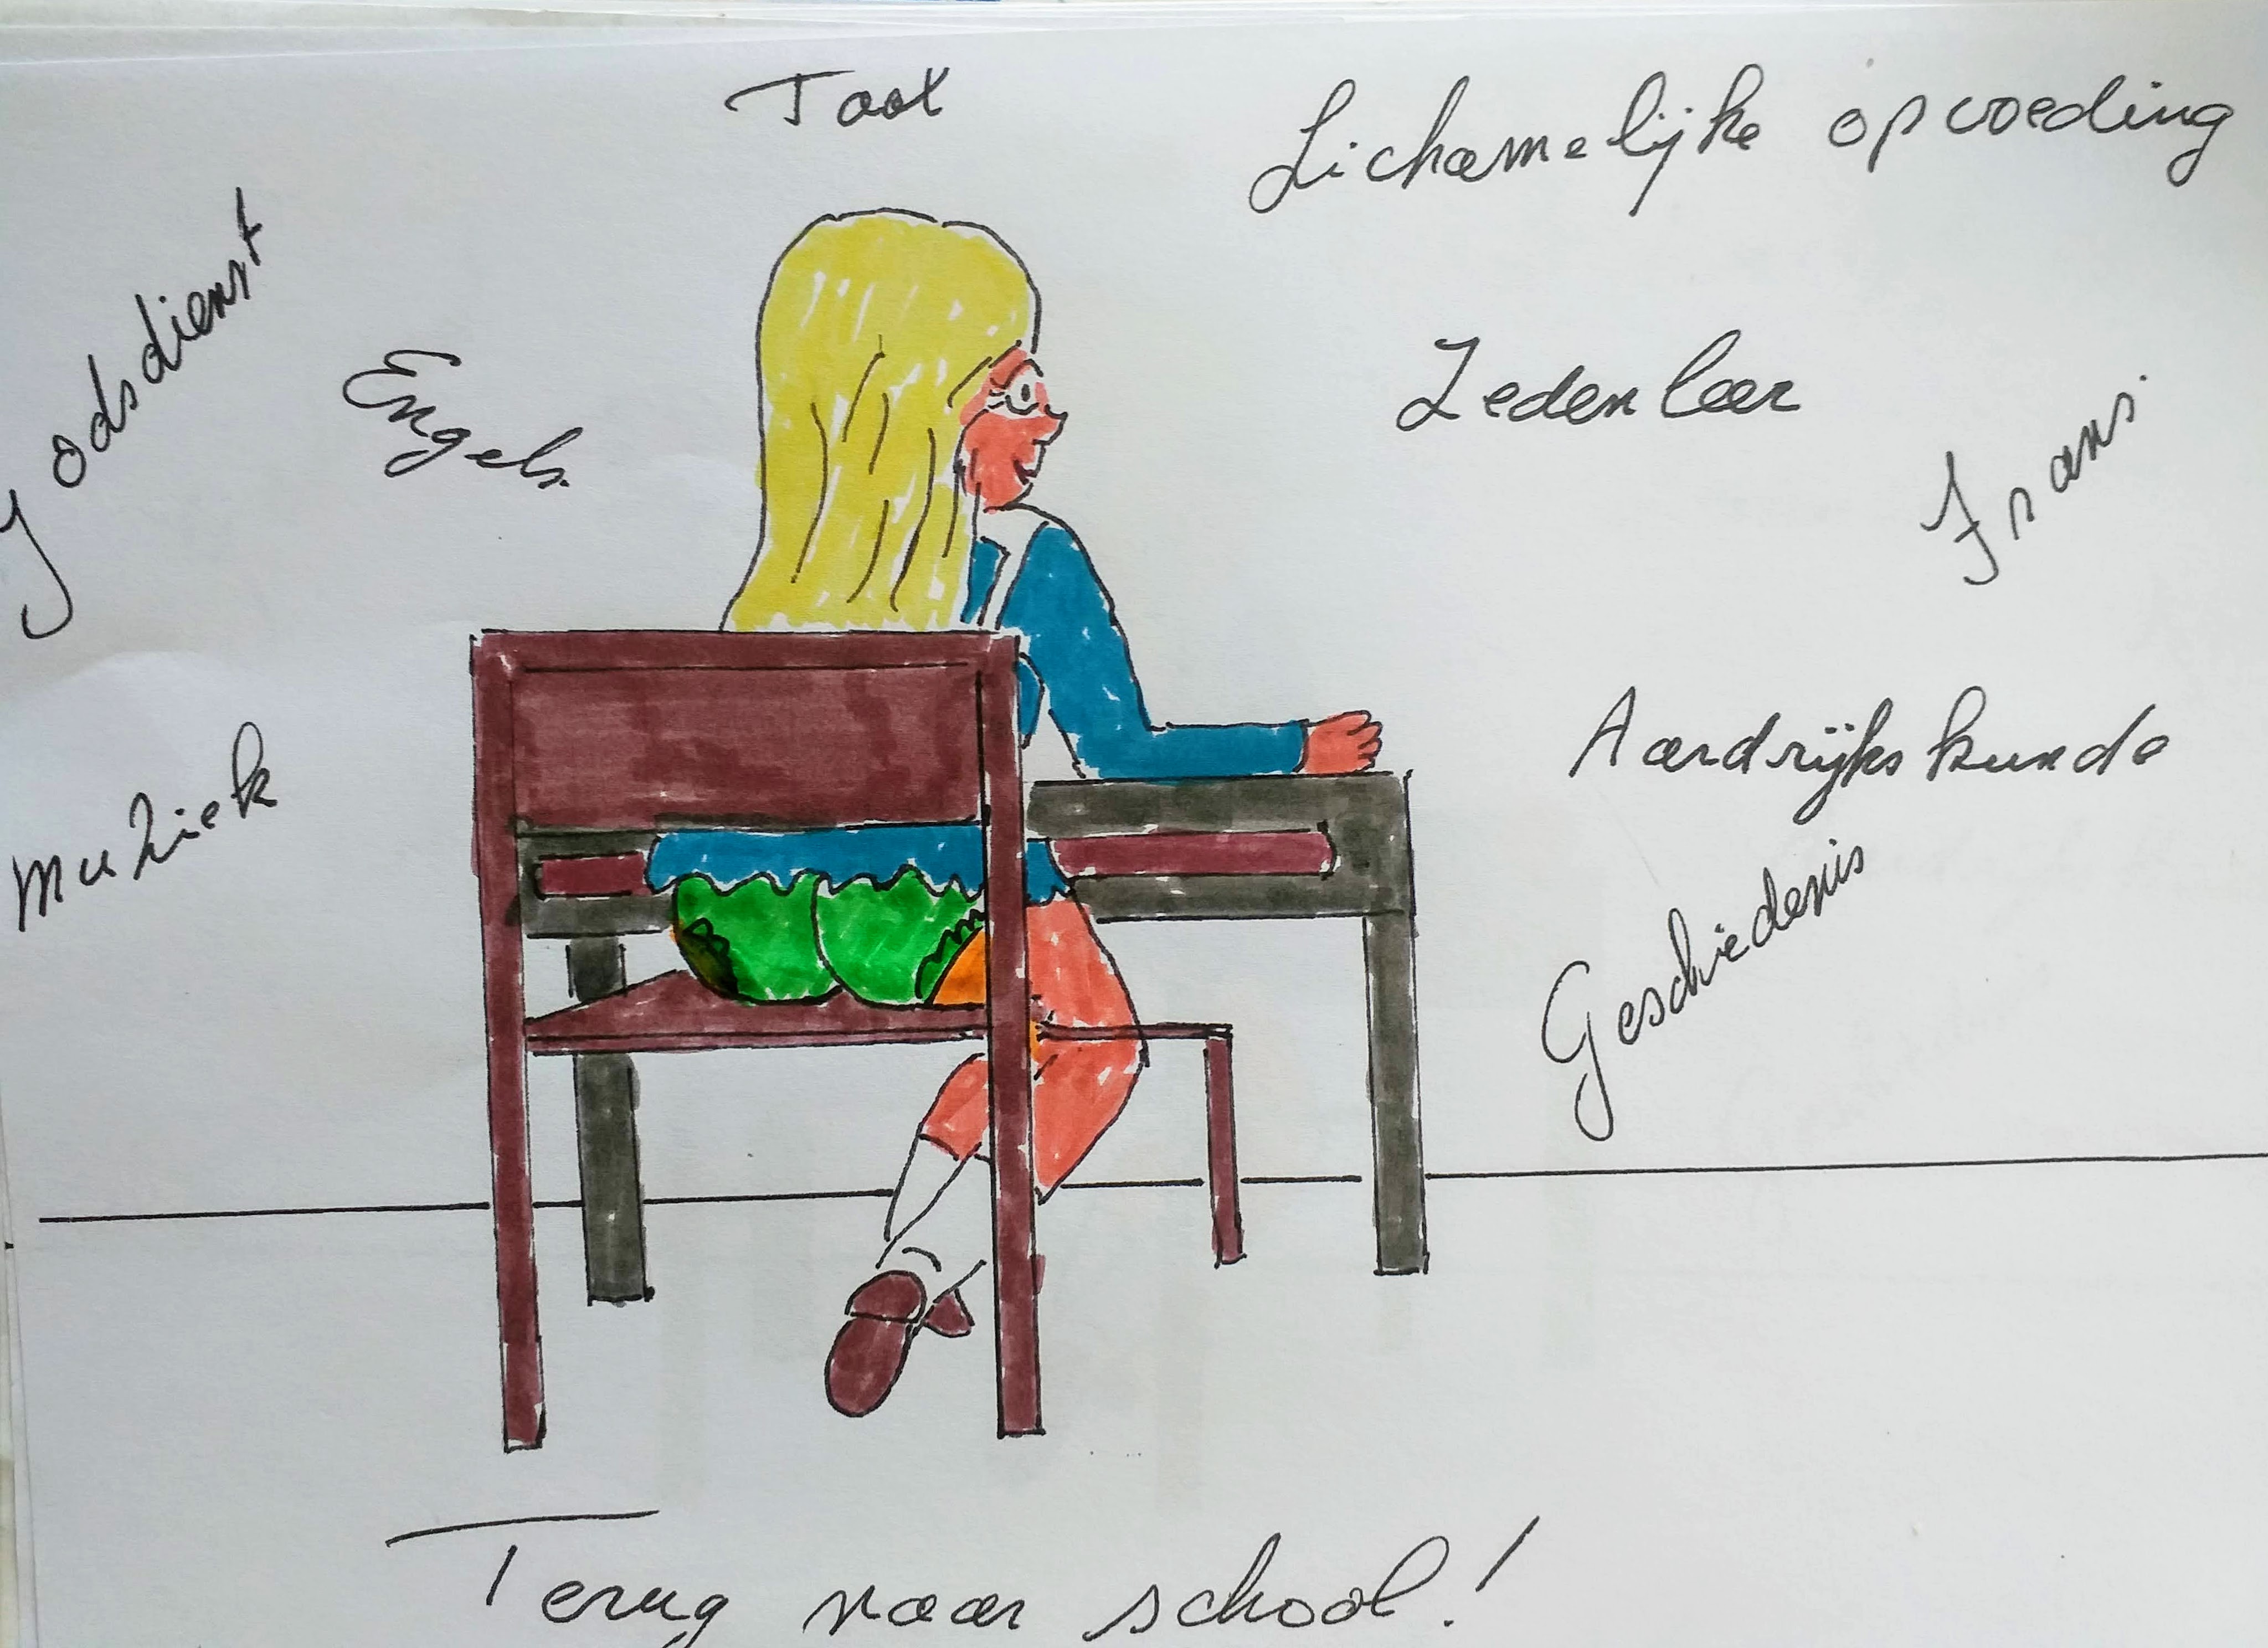 Taal
Lichamelijke opvoeding
Godsdienst
Engels.
Zedenleer
Frans.
Muziek
Aardrijkskunde
Geschiedenis
Terug naar school!